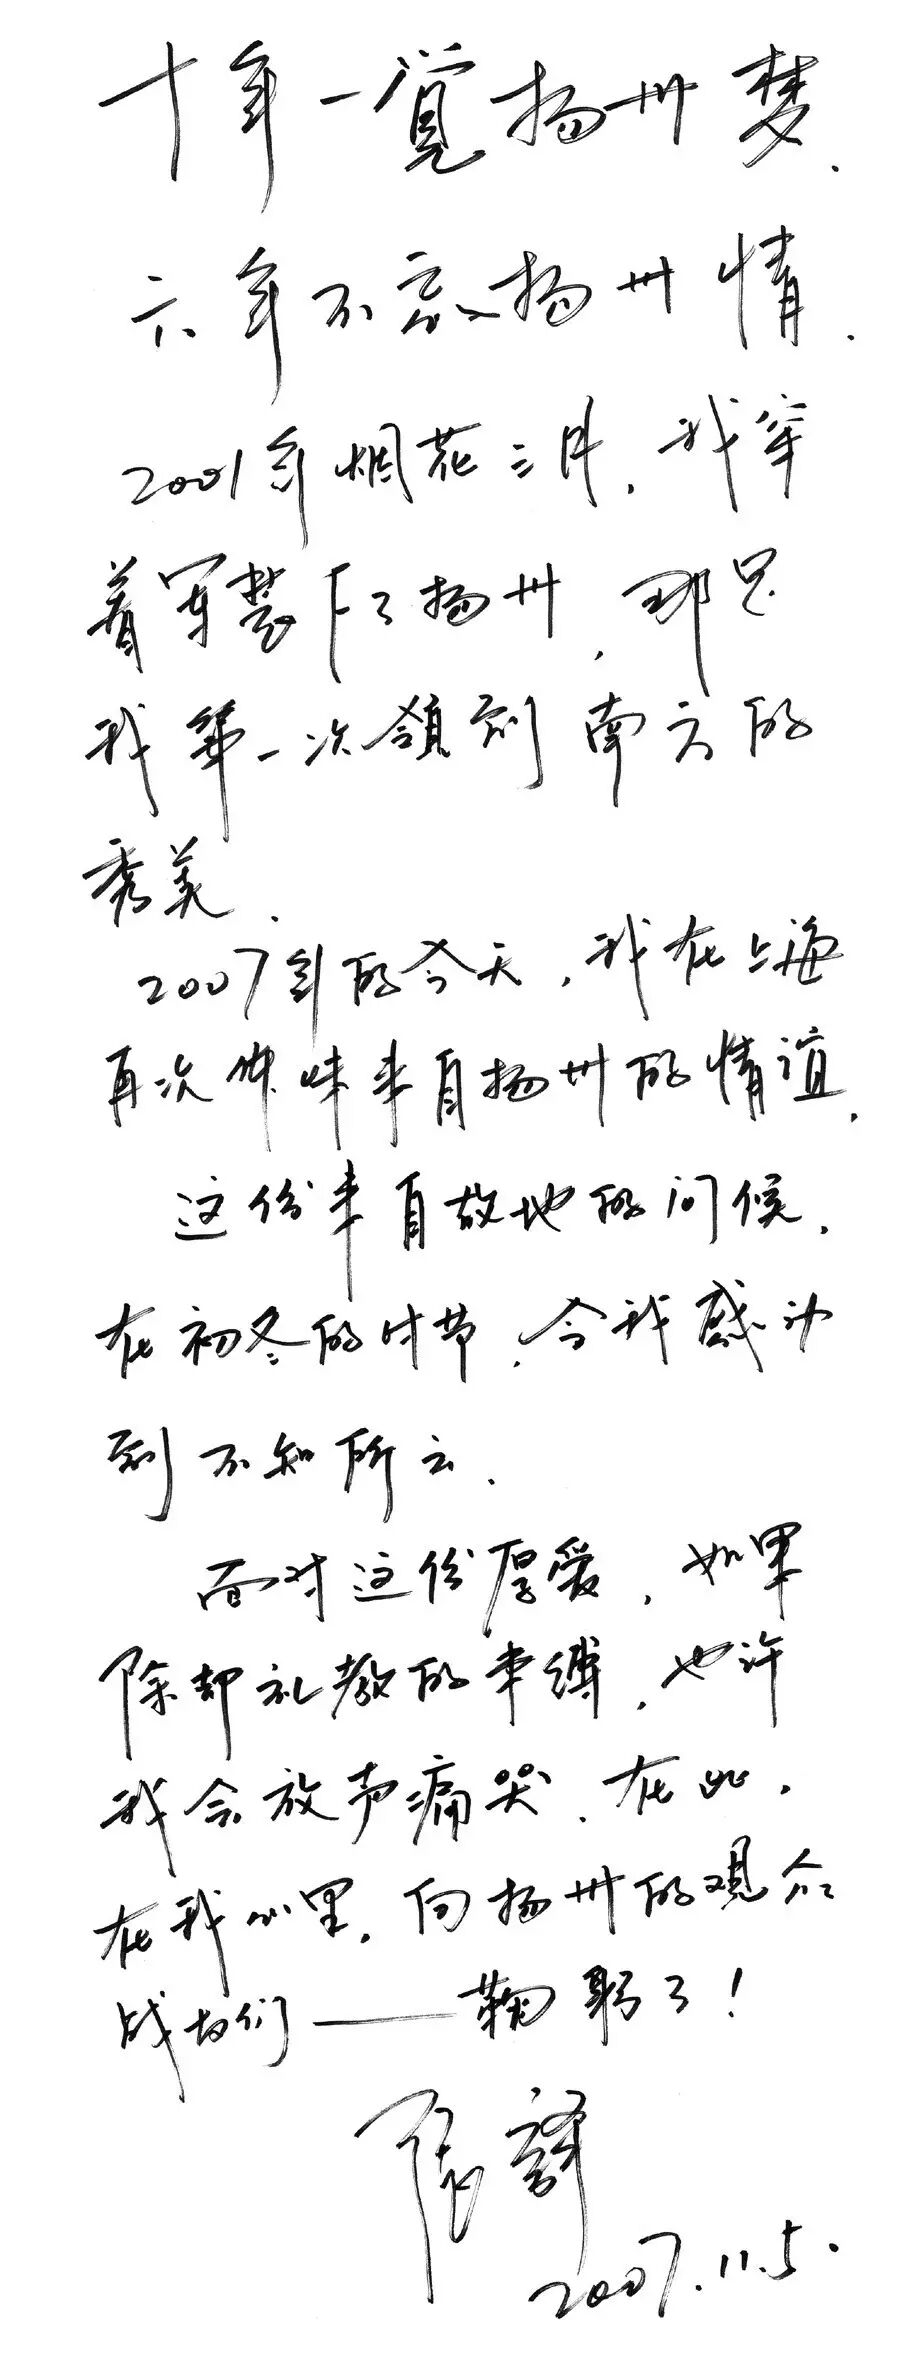 十年一觉扬州梦.
六年不忘扬州情.
2001年烟花三月,我穿
着军装下了扬州,那是
我第一次领到南方的
秀美.
2007年的今天,我在上海
再次体味来自扬州的情谊.
这份来自故地的问候,
在初冬的时节,令我感动
到不知所云.
面对这份厚爱,如果
除却礼教的束缚,也许
我会放声痛哭.在此,
在我心里,向扬州的观众
战友们——鞠躬了!
张译
2007.11.5.